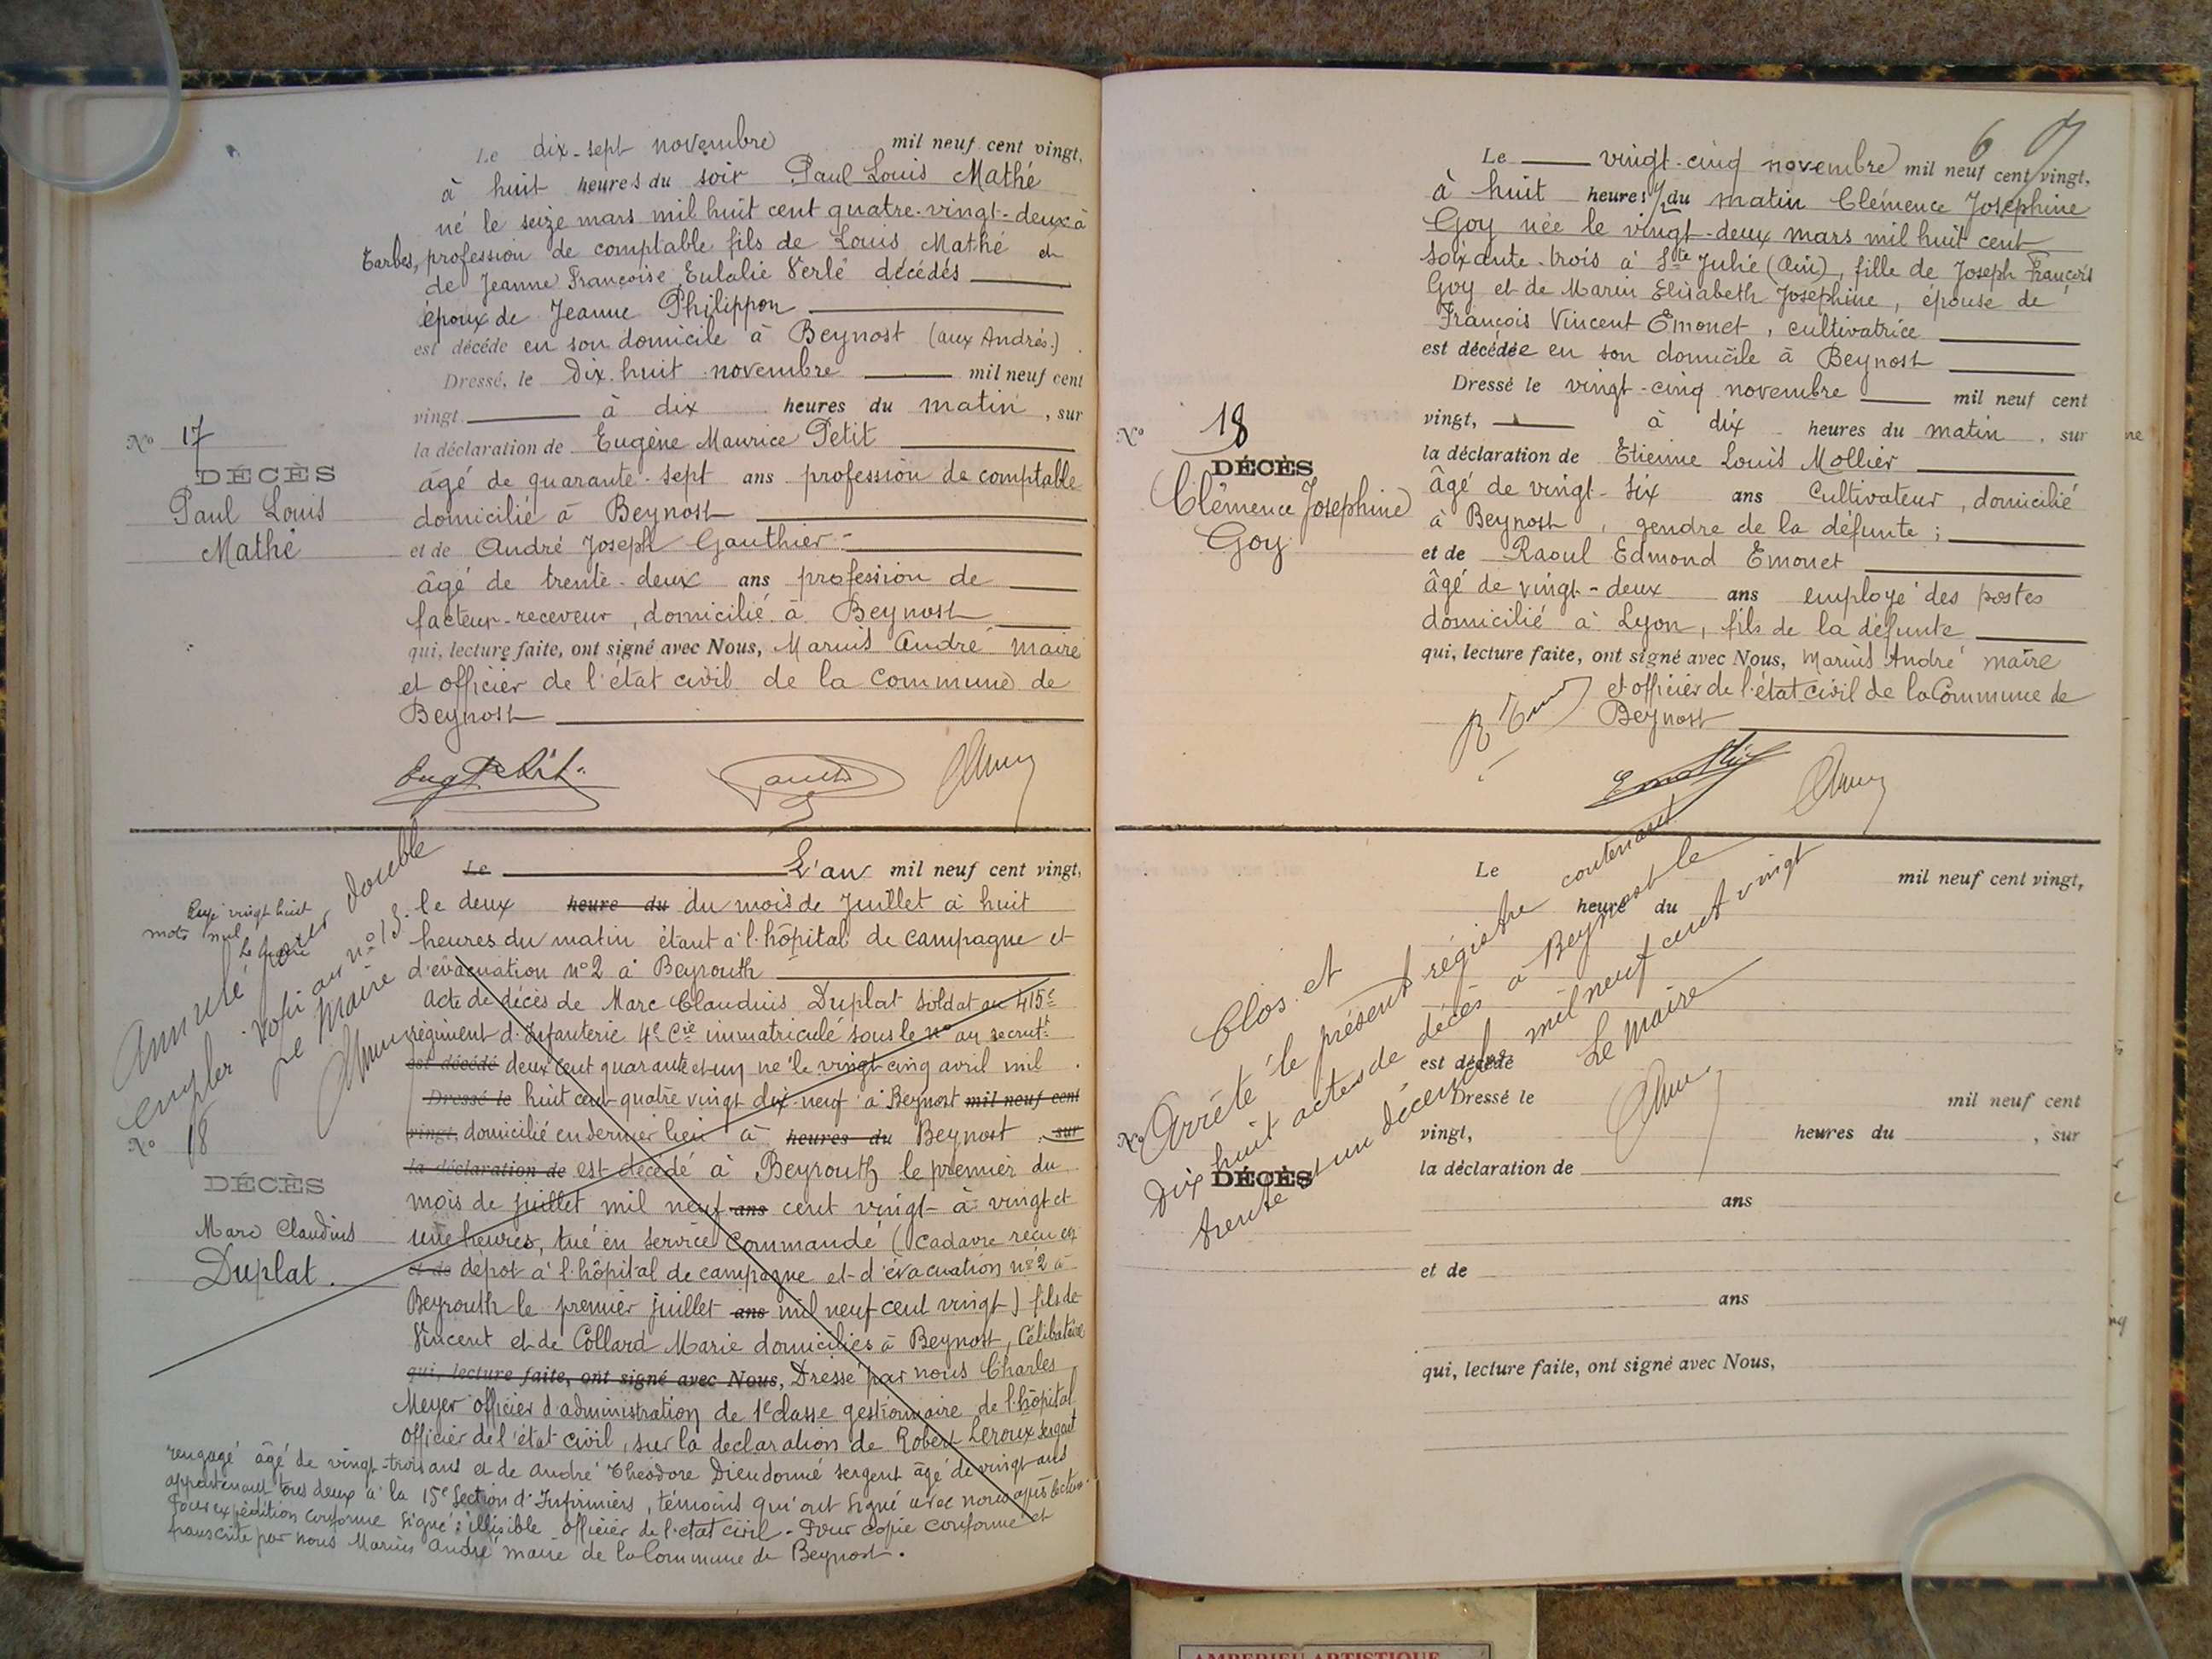 Le dix-sept novembre mil neuf cent vingt,
à huit heures du soir Paul Louis Mathé
né le seize mars mil huit cent quatre-vingt-deux à
Tarbes, profession de comptable fils de Louis Mathé et
de Jeanne Françoise Eulalie Verlé décédés
époux de Jeanne Philippon
est décédé en son domicile à Beynost (aux Andrés.)
Dressé, le dix-huit novembre mil neuf cent
vingt à dix heures du matin, sur
la déclaration de Eugène Maurice Petit
âgé de quarante-sept ans profession de comptable
domicilié à Beynost
et de André Joseph Gauthier
âgé de trente-deux ans profession de
facteur-receveur, domicilié à Beynost
qui, lecture faite, ont signé avec Nous, Marius André maire
et officier de l'état civil de la commune de
Beynost
Eug Petit
No 17
DÉCÈS
Paul Louis
Mathé
Le L'an mil neuf cent vingt,
le deux heure du du mois de Juillet à huit
heures du matin étant à l'hôpital de campagne et
d'évacuation no 2 à Beyrouth
acte de décès de Marc Claudius Duplat soldat au 415e
régiment d'Infanterie 4e Cie immatriculé sous le no au recrutt
est décédé deux cent quarante et un né le vingt cinq avril mil
Dressé le huit cent quatre vingt dix-neuf à Beynost mil neuf cent
vingt, domicilié en dernier lieu à heures du Beynost, sur
la déclaration de est décédé à Beyrouth le premier du
mois de juillet mil neuf ans cent vingt à vingt et
une heures, tué en service commandé (cadavre reçu en
et de dépot à l'hôpital de campagne et d'évacuation no 2 à
Beyrouth le premier juillet ans mil neuf cent vingt) fils de
Vincent et de Collard Marie domiciliés à Beynost, Célibataire
qui, lecture faite, ont signé avec Nous, Dressé par nous Charles
Meyer officier d'administration de 1e classe gestionnaire de l'hôpital
officier de l'état civil, sur la declaration de Robert Leroux sergent
rengagé âgé de vingt-trois ans et de André Théodore Dieudonné sergent âgé de vingt ans
appartenant tous deux à la 15e Section d'Infirmiers, témoins qui ont signé avec nous après lecture.
Pour expédition conforme signé: illisible officier de l'état civil - Pour copie conforme et
transcrite par nous Marius André maire de la Commune de Beynost.
Rayé vingt huit
mots nul
Le Maire
Annulé double
emploi voir au no 13.
Le Maire
No 18
DÉCÈS
Marc Claudius
Duplat.
6
Le vingt-cinq novembre mil neuf cent vingt,
à huit heures 1/2 du matin Clémence Josephine
Goy née le vingt-deux mars mil huit cent
soixante-trois à Ste Julie (Ain), fille de Joseph François
Goy et de Marin Elisabeth Josephine, épouse de
François Vincent Emonet, cultivatrice
est décédée en son domicile à Beynost
Dressé le vingt-cinq novembre mil neuf cent
vingt, à dix heures du matin, sur
la déclaration de Etienne Louis Mollier
âgé de vingt-six ans cultivateur, domicilié
à Beynost, gendre de la défunte;
et de Raoul Edmond Emonet
âgé de vingt-deux ans employé des postes
domicilié à Lyon, fils de la défunte
qui, lecture faite, ont signé avec Nous, Marius André maire
et officier de l'état civil de la Commune de
Beynost
No 18
DÉCÈS
Clémence Josephine
Goy
Le mil neuf cent vingt,
heure du
est décédé
Dressé le mil neuf cent
vingt, heures du , sur
la déclaration de
ans
et de
ans
qui, lecture faite, ont signé avec Nous,
No
DÉCÈS
Clos et
Arrêté le présent régistre contenant
Dix huit actes de décès à Beynost le
trente et un décembre mil neuf cent vingt
Le Maire
AMBERIEU ARTISTIQUE